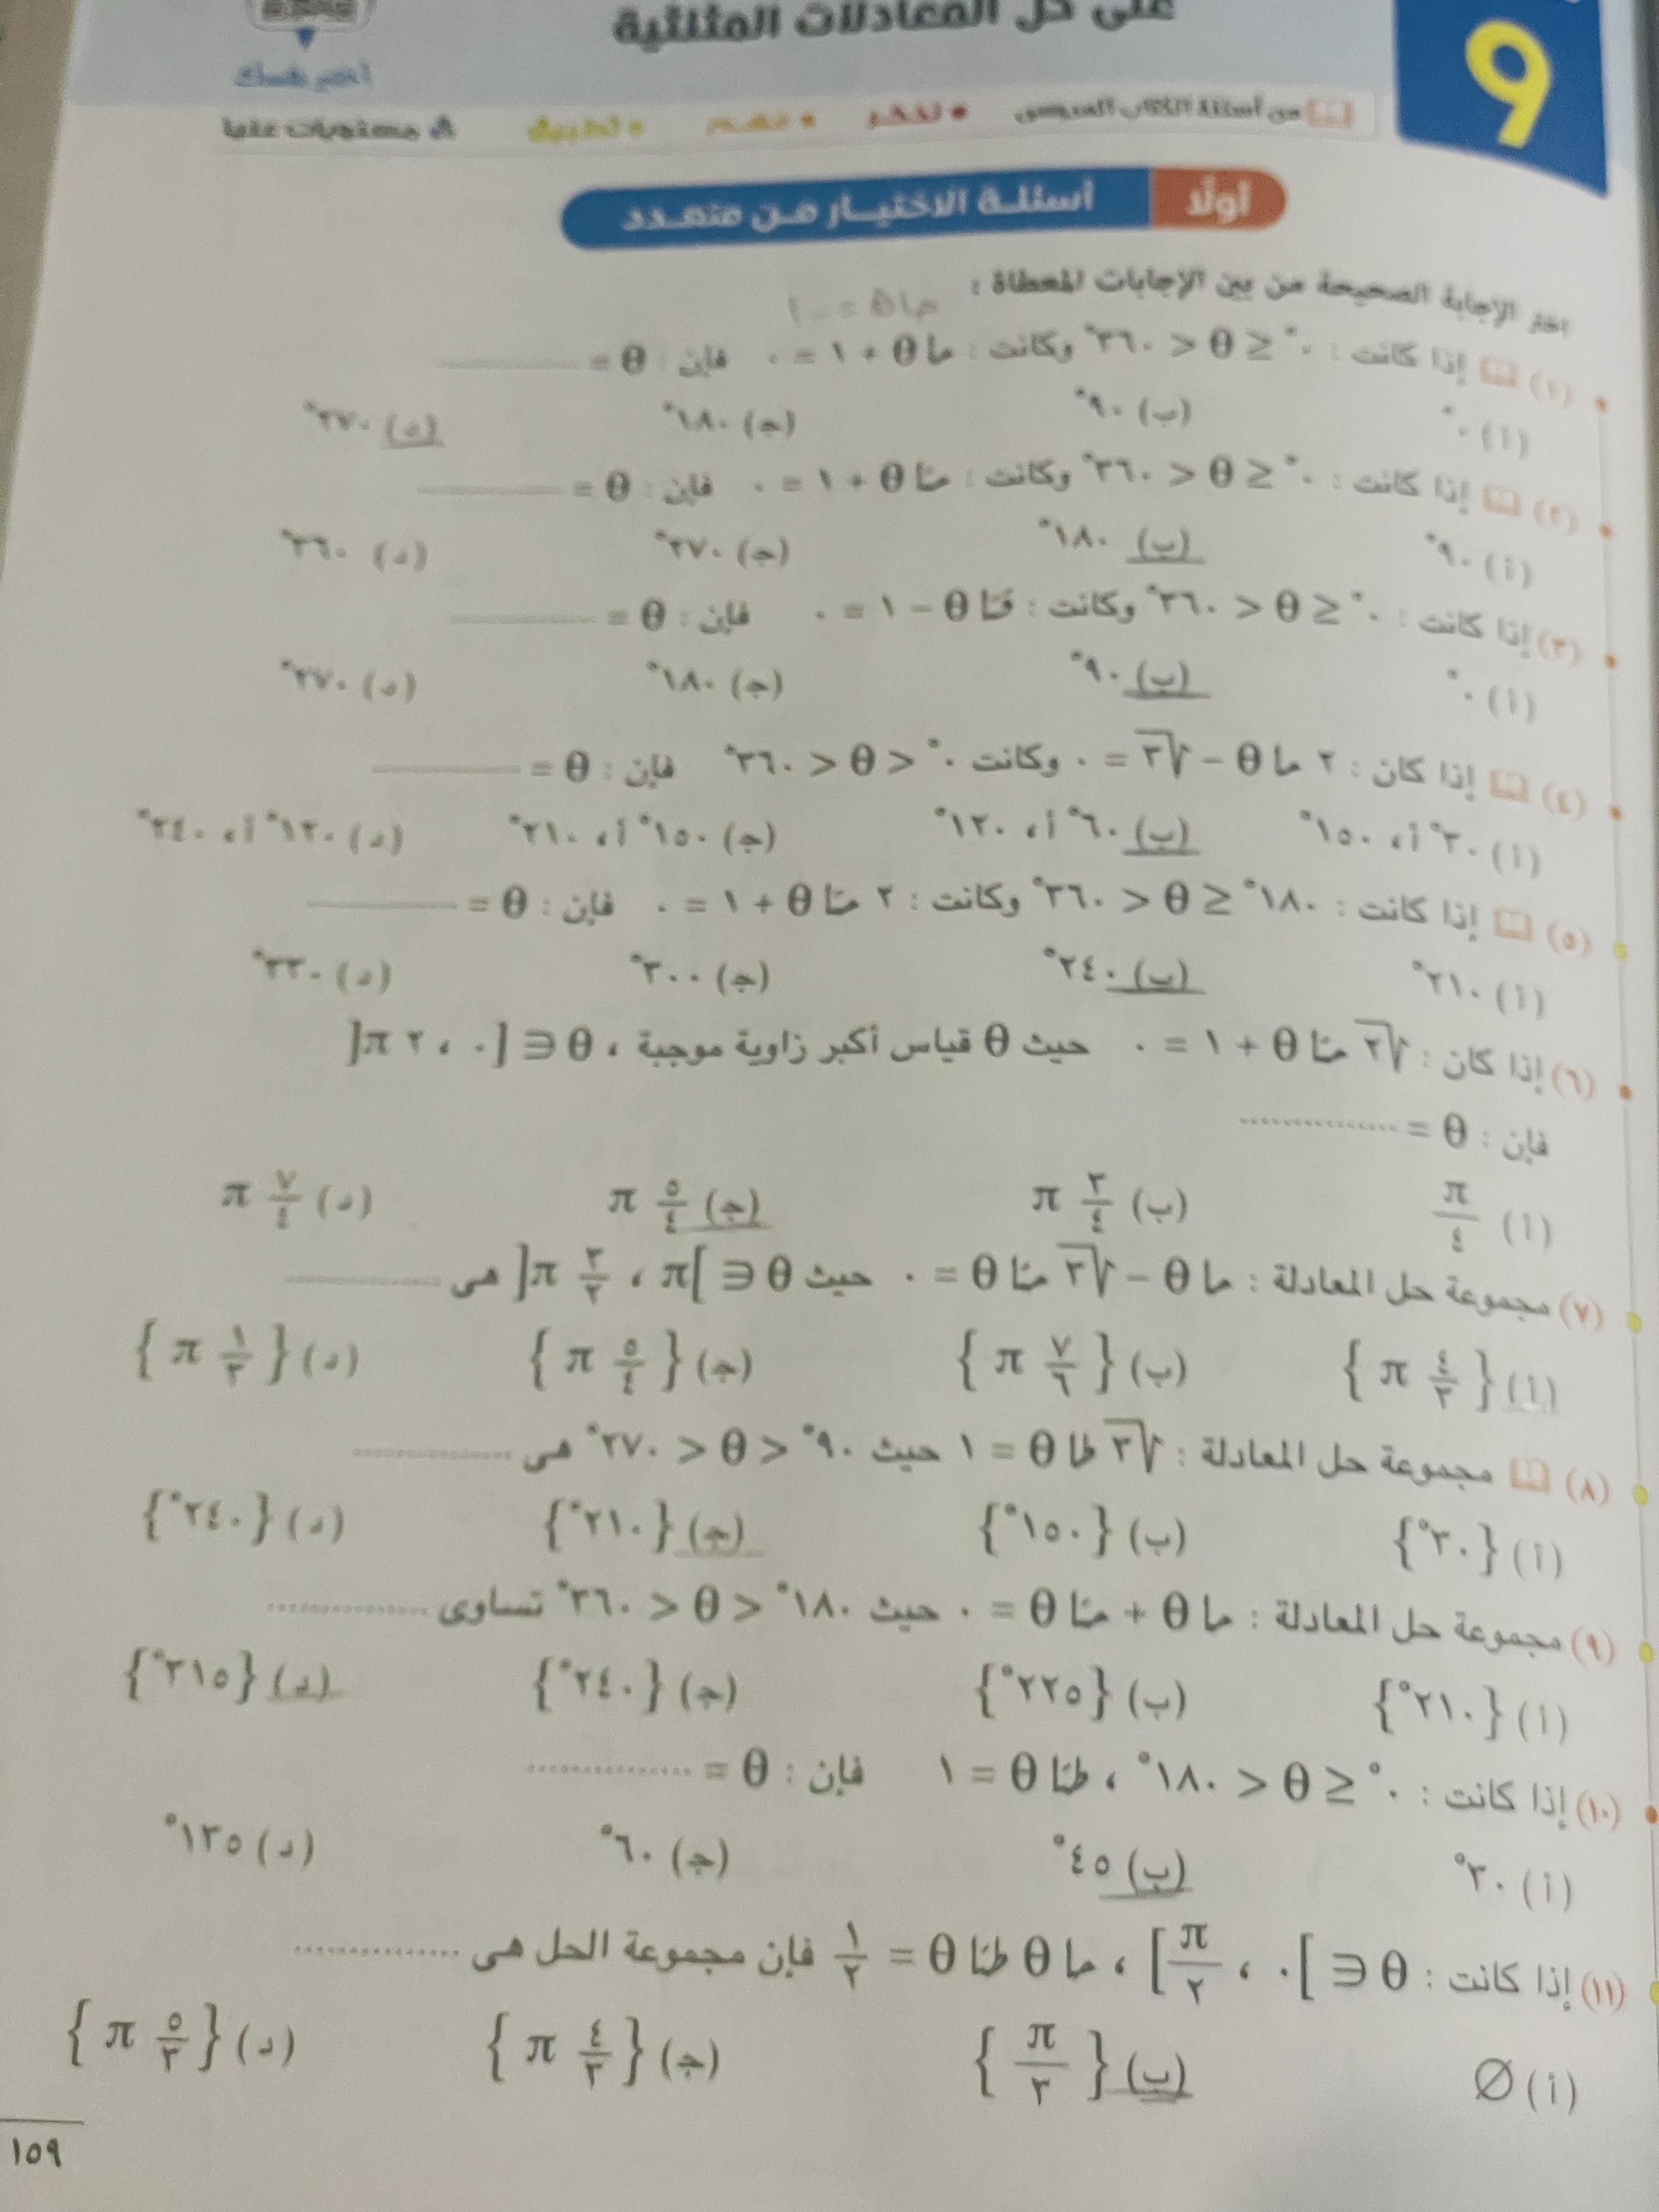 على حل المعادلات المثلثية
٩
اختبر نفسك
من أسئلة الكتاب المدرسى • تذكر • فهم • تطبيق مستويات عليا
أولًا أسئلة الاختيار من متعدد
اختر الإجابة الصحيحة من بين الإجابات المعطاة :
ما θ = - ١
(١) إذا كانت : ٠° ≤ θ < ٣٦٠° وكانت : ما θ + ١ = ٠ فإن : θ = ............
(أ) ٠° (ب) ٩٠° (جـ) ١٨٠° (د) ٢٧٠°
(٢) إذا كانت : ٠° ≤ θ < ٣٦٠° وكانت : منا θ + ١ = ٠ فإن : θ = ............
(أ) ٩٠° (ب) ١٨٠° (جـ) ٢٧٠° (د) ٣٦٠°
(٣) إذا كانت : ٠° ≤ θ < ٣٦٠° وكانت : قتا θ − ١ = ٠ فإن : θ = ............
(أ) ٠° (ب) ٩٠° (جـ) ١٨٠° (د) ٢٧٠°
(٤) إذا كان : ٢ ما θ − √٣ = ٠ وكانت ٠° < θ < ٣٦٠° فإن : θ = ............
(أ) ٣٠° أ، ١٥٠° (ب) ٦٠° أ، ١٢٠° (جـ) ١٥٠° أ، ٢١٠° (د) ١٢٠° أ، ٢٤٠°
(٥) إذا كانت : ١٨٠° ≤ θ < ٣٦٠° وكانت : ٢ منا θ + ١ = ٠ فإن : θ = ............
(أ) ٢١٠° (ب) ٢٤٠° (جـ) ٣٠٠° (د) ٣٣٠°
(٦) إذا كان : √٢ منا θ + ١ = ٠ حيث θ قياس أكبر زاوية موجبة ، θ ∈ [٠ ، ٢ π[
فإن : θ = ............
(أ) π/٤ (ب) ٣/٤ π (جـ) ٥/٤ π (د) ٧/٤ π
(٧) مجموعة حل المعادلة : ما θ − √٣ منا θ = ٠ حيث θ ∈ ]π ، ٣/٢ π[ هى ............
(أ) {٤/٣ π} (ب) {٧/٦ π} (جـ) {٥/٤ π} (د) {١/٣ π}
(٨) مجموعة حل المعادلة : √٣ طا θ = ١ حيث ٩٠° < θ < ٢٧٠° هى ............
(أ) {٣٠°} (ب) {١٥٠°} (جـ) {٢١٠°} (د) {٢٤٠°}
(٩) مجموعة حل المعادلة : ما θ + منا θ = ٠ حيث ١٨٠° < θ < ٣٦٠° تساوى ............
(أ) {٢١٠°} (ب) {٢٢٥°} (جـ) {٢٤٠°} (د) {٣١٥°}
(١٠) إذا كانت : ٠° ≤ θ < ١٨٠° ، طنا θ = ١ فإن : θ = ............
(أ) ٣٠° (ب) ٤٥° (جـ) ٦٠° (د) ١٣٥°
(١١) إذا كانت : θ ∈ ]٠ ، π/٢] ، ما θ طنا θ = ١/٢ فإن مجموعة الحل هى ............
(أ) ∅ (ب) {π/٣} (جـ) {٤/٣ π} (د) {٥/٣ π}
١٥٩